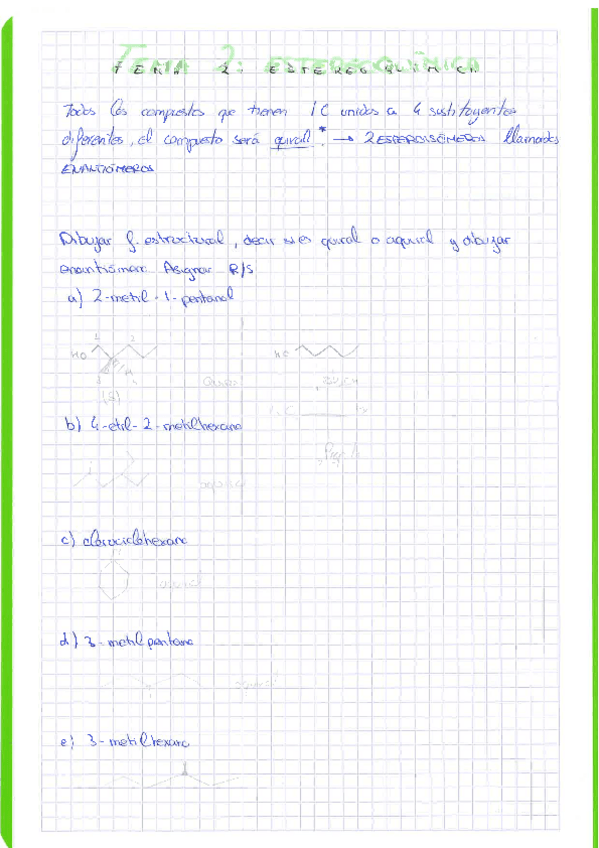 TEMA 2: ESTEREOQUÍMICA
Todos los compuestos que tienen 1C unidos a 4 sustituyentes
diferentes, el compuesto será quiral * → 2 ESTEROISÓMEROS llamados
ENANTIÓMEROS
Dibujar f. estructural, decir si es quiral o aquiral y dibujar
enantiómero. Asignar R/S
a) 2-metil-1-pentanol
1 2
HO
H
(S)
HO
b) 4-etil-2-metilhexano
c) clorociclohexano
d) 3-metilpentano
e) 3-metilhexano